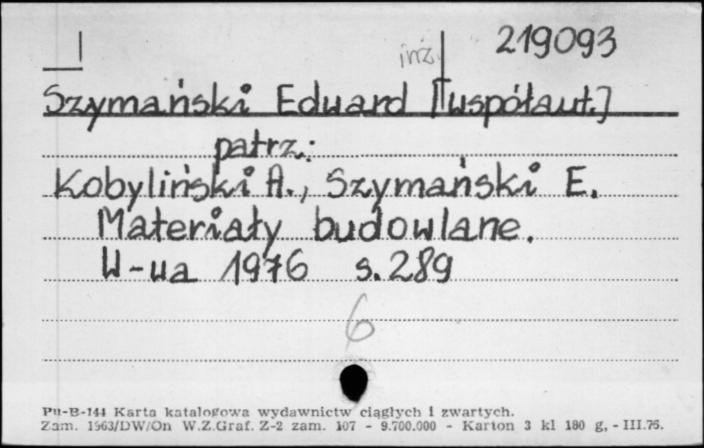 inż. 219093
Szymański Eduard [współaut.]
patrz:
Kobyliński A., Szymański E.
Materiały budowlane.
W-wa 1976 s. 289
6
Pu-B-144 Karta katalogowa wydawnictw ciągłych i zwartych.
Zam. 1563/DW/On W.Z.Graf. Z-2 zam. 107 - 9.700.000 - Karton 3 kl 180 g, - III.76.